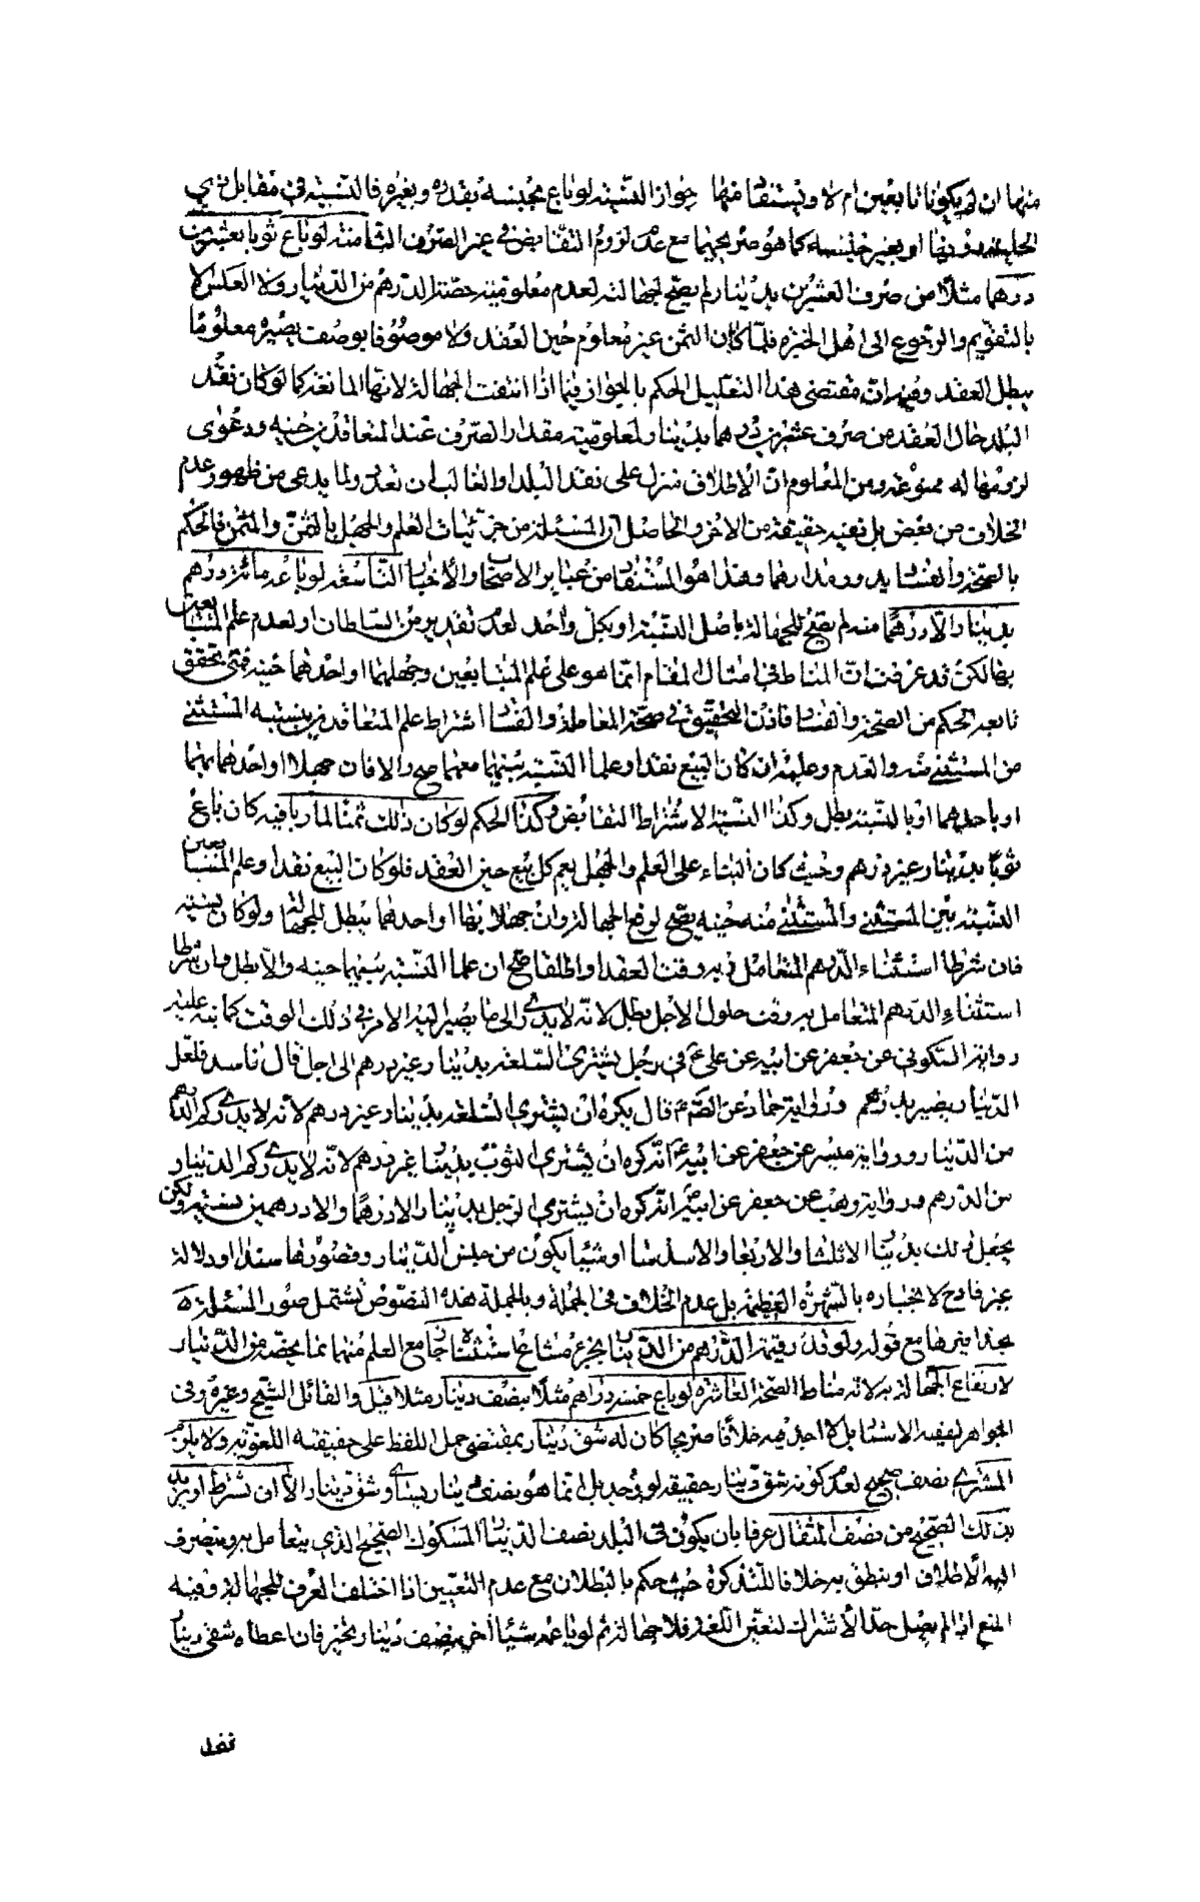 منها ان لم يكونا تابعين ام لا ويستفاد منها جواز النسيئة لو باع بجنسه بقدره وبغيره فالنسيئة في مقابل
او بغير جنسه كما هو صريحهما مع عدم لزوم التقابض في غير الصرف الثامنة لو باع ثوبا بعشرين
درهما مثلا من صرف العشرين بدينار لم يصح لجهالته لعدم معلومية حصة الدرهم من الدينار ولا العكس الا
بالتقويم والرجوع الى اهل الخبرة فلما كان الثمن غير معلوم حين العقد ولا موصوفا بوصف يصير معلوما
يبطل العقد وفيه ان مقتضى هذا التعليل الحكم بالجواز فيما اذا انتفت الجهالة لانها المانعة كما لو كان نقد
البلد حال العقد من صرف عشرين درهما بدينار لمعلومية مقدار الصرف عند المتعاقدين حينه ودعوى
لزومها له ممنوعة ومن المعلوم ان الاطلاق منزل على نقد البلد او الغالب ان تعدد ولما يدعى من ظهور عدم
الخلاف من بعض بل نفيه حقيقة من الاخر والحاصل ان المسئلة من جزئيات العلم والجهل بالثمن والمثمن فالحكم
بالصحة والفساد يدور مدارهما وهذا هو المستفاد من عبائر الاصحاب والاخبار التاسعة لو باعه مائة درهم
بدينار الا درهما منه لم يصح للجهالة باصل النسبة او بكل واحد لعدم تقدير من السلطان او لعدم علم المتبايعين
بها لكن قد عرفت ان المناط في امثال المقام انما هو على علم المتبايعين وجهلهما او احدهما حينه فمتى تحقق
تابعه الحكم من الصحة والفساد فاذن التحقيق في صحة المعاملة والفساد اشتراط علم المتعاقدين بنسبة المستثنى
من المستثنى منه والعدم وعليه ان كان البيع نقدا وعلما النسبة بينهما معهما صح والا فان جهلا او احدهما بهما
او باحدهما او بالنسبة بطل وكذا النسيئة لاشتراط التقابض وكذا الحكم لو كان ذلك ثمنا لما ربا فيه كان باع
ثوبا بدينار غير درهم وحيث كان البناء على العلم والجهل يعم كل بيع حين العقد فلو كان البيع نقدا وعلم المتبايعين
النسبة بين المستثنى والمستثنى منه حينه يصح لرفع الجهالة وان جهلا بها او احدهما يبطل للجهالة ولو كان نسيئة
فان شرطا استثناء الدرهم المتعامل فيه وقت العقد او اطلقا صح ان علما النسبة بينهما حينه والا بطل وان شرطا
استثناء الدرهم المتعامل به وقت حلول الاجل بطل لانه لا يدرى الى ما يصير اليه الامر في ذلك الوقت كما نبه عليه
رواية السكوني عن جعفر عن ابيه عن علي ع في رجل يشتري السلعة بدينار غير درهم الى اجل قال فاسد فلعل
الدينار يصير بدرهم ورواية حماد عن الصم قال يكره ان يشتري السلعة بدينار غير درهم لانه لا يدرى كم الدرهم
من الدينار ورواية ميسر عن جعفر عن ابيه ع انه كره ان يشتري الثوب بدينار غير درهم لانه لا يدرى كم الدينار
من الدرهم ورواية وهب عن جعفر عن ابيه انه كره ان يشتري الرجل بدينار الا درهما والا درهمين نسيئة ولكن
يجعل ذلك بدينار الا ثلثا والا ربعا والا سدسا او شيئا يكون من جنس الدينار وقصورها سندا او دلالة
غير قادح لانجباره بالشهرة العظيمة بل عدم الخلاف في الجملة وبالجملة هذه النصوص تشتمل صور المسئلة
ولو قدر قيمة الدرهم من الدينار بجزء مشاع استثناه جاز مع العلم منهما بما يخصه من الدينار
لارتفاع الجهالة به لانه مناط الصحة العاشرة لو باع خمسة دراهم مثلا بنصف دينار مثلا قيل والقائل الشيخ وغيره وفي
الجواهر لفيه الاستاد بل لا اجد فيه خلافا صريحا كان له شق دينار بمقتضى حمل اللفظ على حقيقته اللغوية ولا يلزم
المشتري نصف صحيح لعدم كونه شق دينار حقيقة لو وجد بل انما هو نصف دينار يساوي شق دينار الا ان يشترط او يريد
بذلك الصحيح من نصف المثقال عرفا بان يكون في البلد نصف الدينار المسكوك الصحيح الذي يتعامل به وينصرف
اليه الاطلاق او ينطق به خلافا للتذكرة حيث حكم بالبطلان مع عدم التعيين اذا اختلف العرف للجهالة وفيه
المنع اذا لم يصل حد الاشتراك لتعين اللغة فلا جهالة ثم لو باعه شيئا اخر بنصف دينار تخير فان اعطاه شقى دينار
فقد